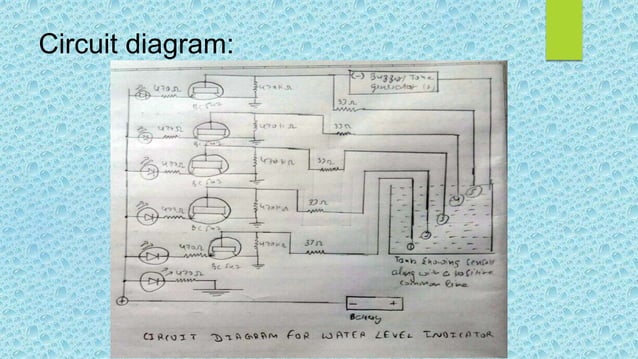 Circuit diagram:
470Ω
470KΩ
(-) Buzzer/Tone
generator (+)
BC547
33Ω
470Ω
470KΩ
33Ω
BC547
470Ω
470KΩ
33Ω
BC547
470Ω
470KΩ
33Ω
BC547
470Ω
470KΩ
33Ω
BC547
470Ω
5
4
3
2
1
Tank showing sensor
along with a positive
common line
- +
Battery
CIRCUIT DIAGRAM FOR WATER LEVEL INDICATOR